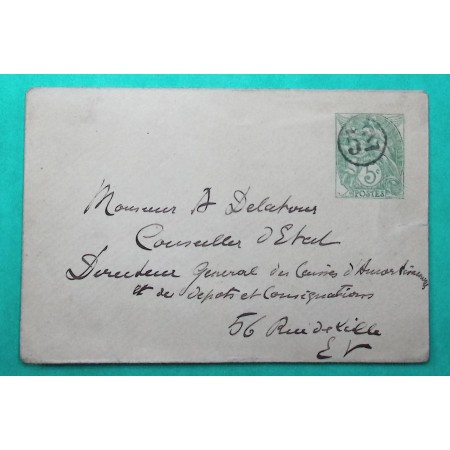 52
5c
POSTES
Monsieur A Delatour
Conseiller d'Etat
Directeur General des Caisses d'Amortissement
et de Depots et Consignations
56 Rue de Lille
E V